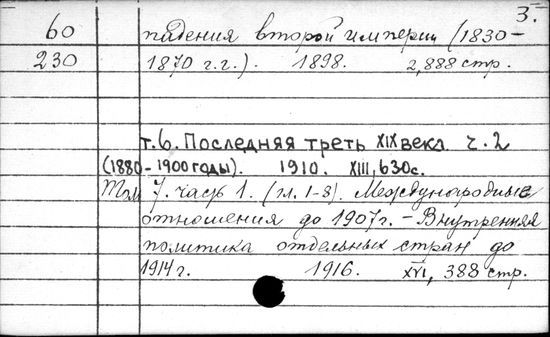 3.
60 падения второй империи (1830-
230 1870 г.г.). 1898. 2,888 стр.
т.6. Последняя треть XIX века. ч.2
(1880-1900 годы). 1910. XIII, 630с.
Том 7. часть 1. (гл. 1-8). Международные
отношения до 1907 г. - Внутренняя
политика отдельных стран до
1914 г. 1916. XVI, 388 стр.